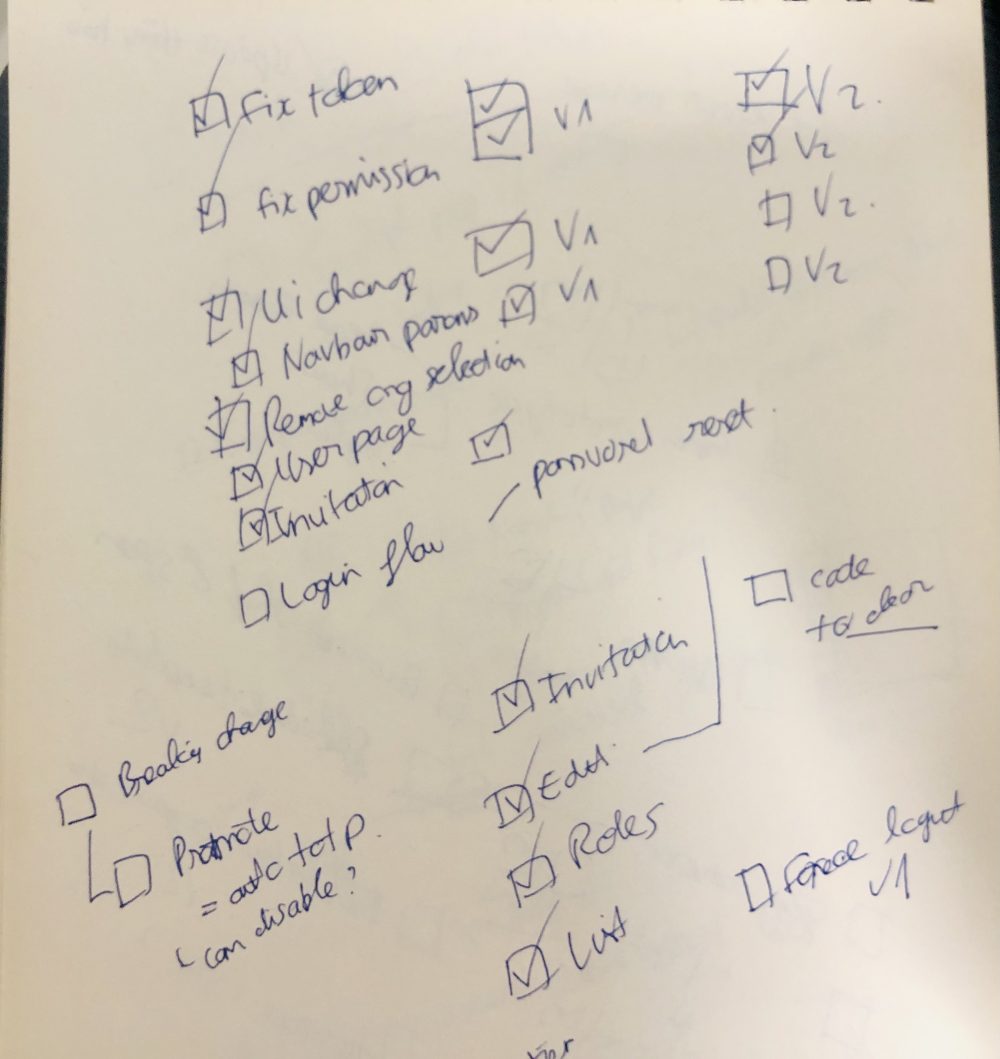 ☑ Fix token ☑ ☑ V1 ☑ V2.
☑ fix permission ☑ V2
☑ Ui change ☑ V1 ☐ V2.
☑ Navbar params ☑ V1 ☐ V2
☑ Remove org selection
☑ User page ☑
☑ Invitation
☐ Login flow – password reset.
☐ code
to clean
☑ Invitation
☐ Breaking change
☑ Edit
☐ Promote
= auth totp.
can disable?
☑ Roles
☐ Force logout
V1
☑ List